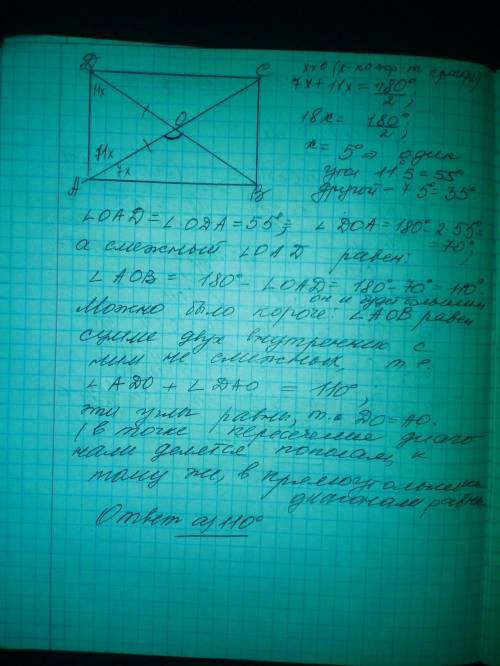 D
C
11x
O
11x
7x
A
B
x>0 (x - коэф-т
7x + 11x = 180°/2;
18x = 180°/2;
x = 5° ⇒ один
угол 11·5 = 55°
другой - 7·5° = 35°
∠OAD = ∠ODA = 55° ⇒ ∠DOA = 180° - 2·55° =
= 70°;
а смежный ∠OAD равен:
∠AOB = 180° - ∠OAD = 180° - 70° = 110°
он и будет
Можно было короче: ∠AOB равен
сумме двух внутренних с
ним не смежных, т.е.
∠ADO + ∠DAO = 110°,
эти углы равны, т.к DO = AO.
(в точке пересечения диаго
нали делятся пополам, к
тому же, в прямоугольнике
диагонали равны
Ответ а) 110°